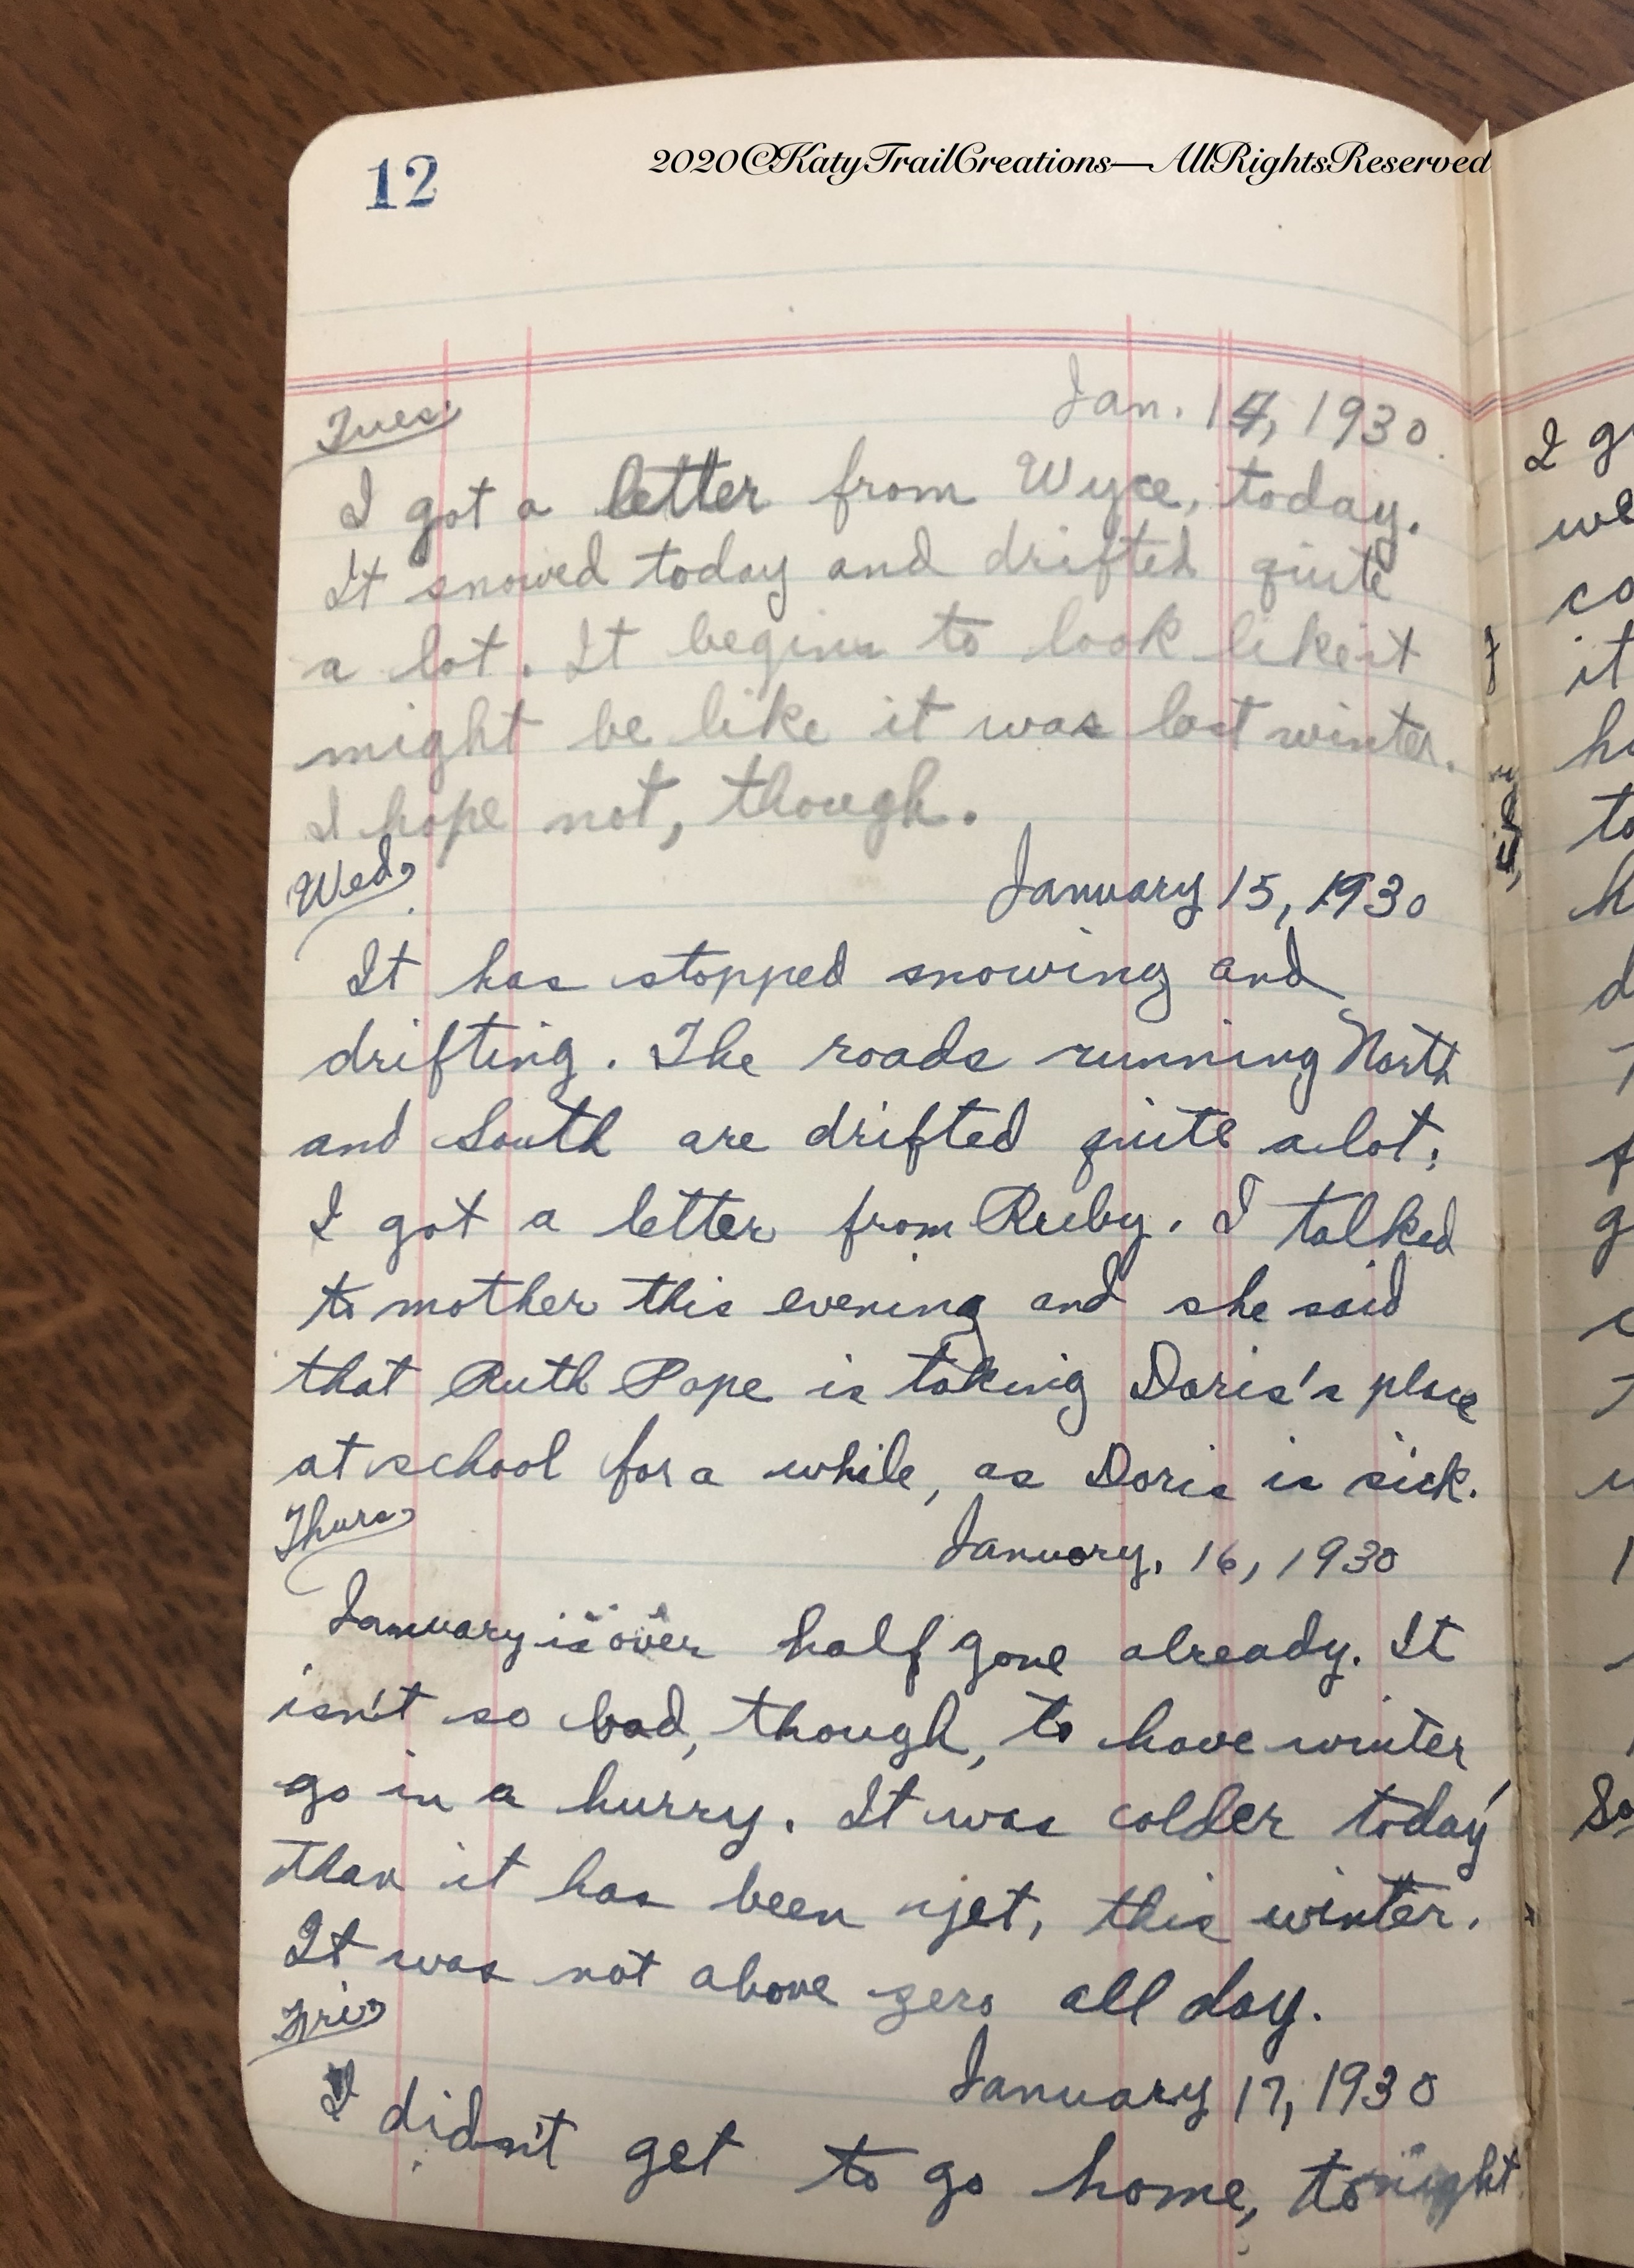 12
2020©KatyTrailCreations—AllRightsReserved
Tues.
Jan. 14, 1930.
I got a letter from Wyce, today.
It snowed today and drifted quite
a lot. It begins to look like it
might be like it was last winter.
I hope not, though.
Wed,
January 15, 1930
It has stopped snowing and
drifting. The roads running North
and South are drifted quite a lot.
I got a letter from Ruby. I talked
to mother this evening and she said
that Ruth Pope is taking Doris's place
at school for a while, as Doris is sick.
Thurs,
January, 16, 1930
January is over half gone already. It
isn't so bad, though, to have winter
go in a hurry. It was colder today
than it has been yet, this winter.
It was not above zero all day.
Fri,
January 17, 1930
I didn't get to go home, tonight
I
we
co
it
to
So